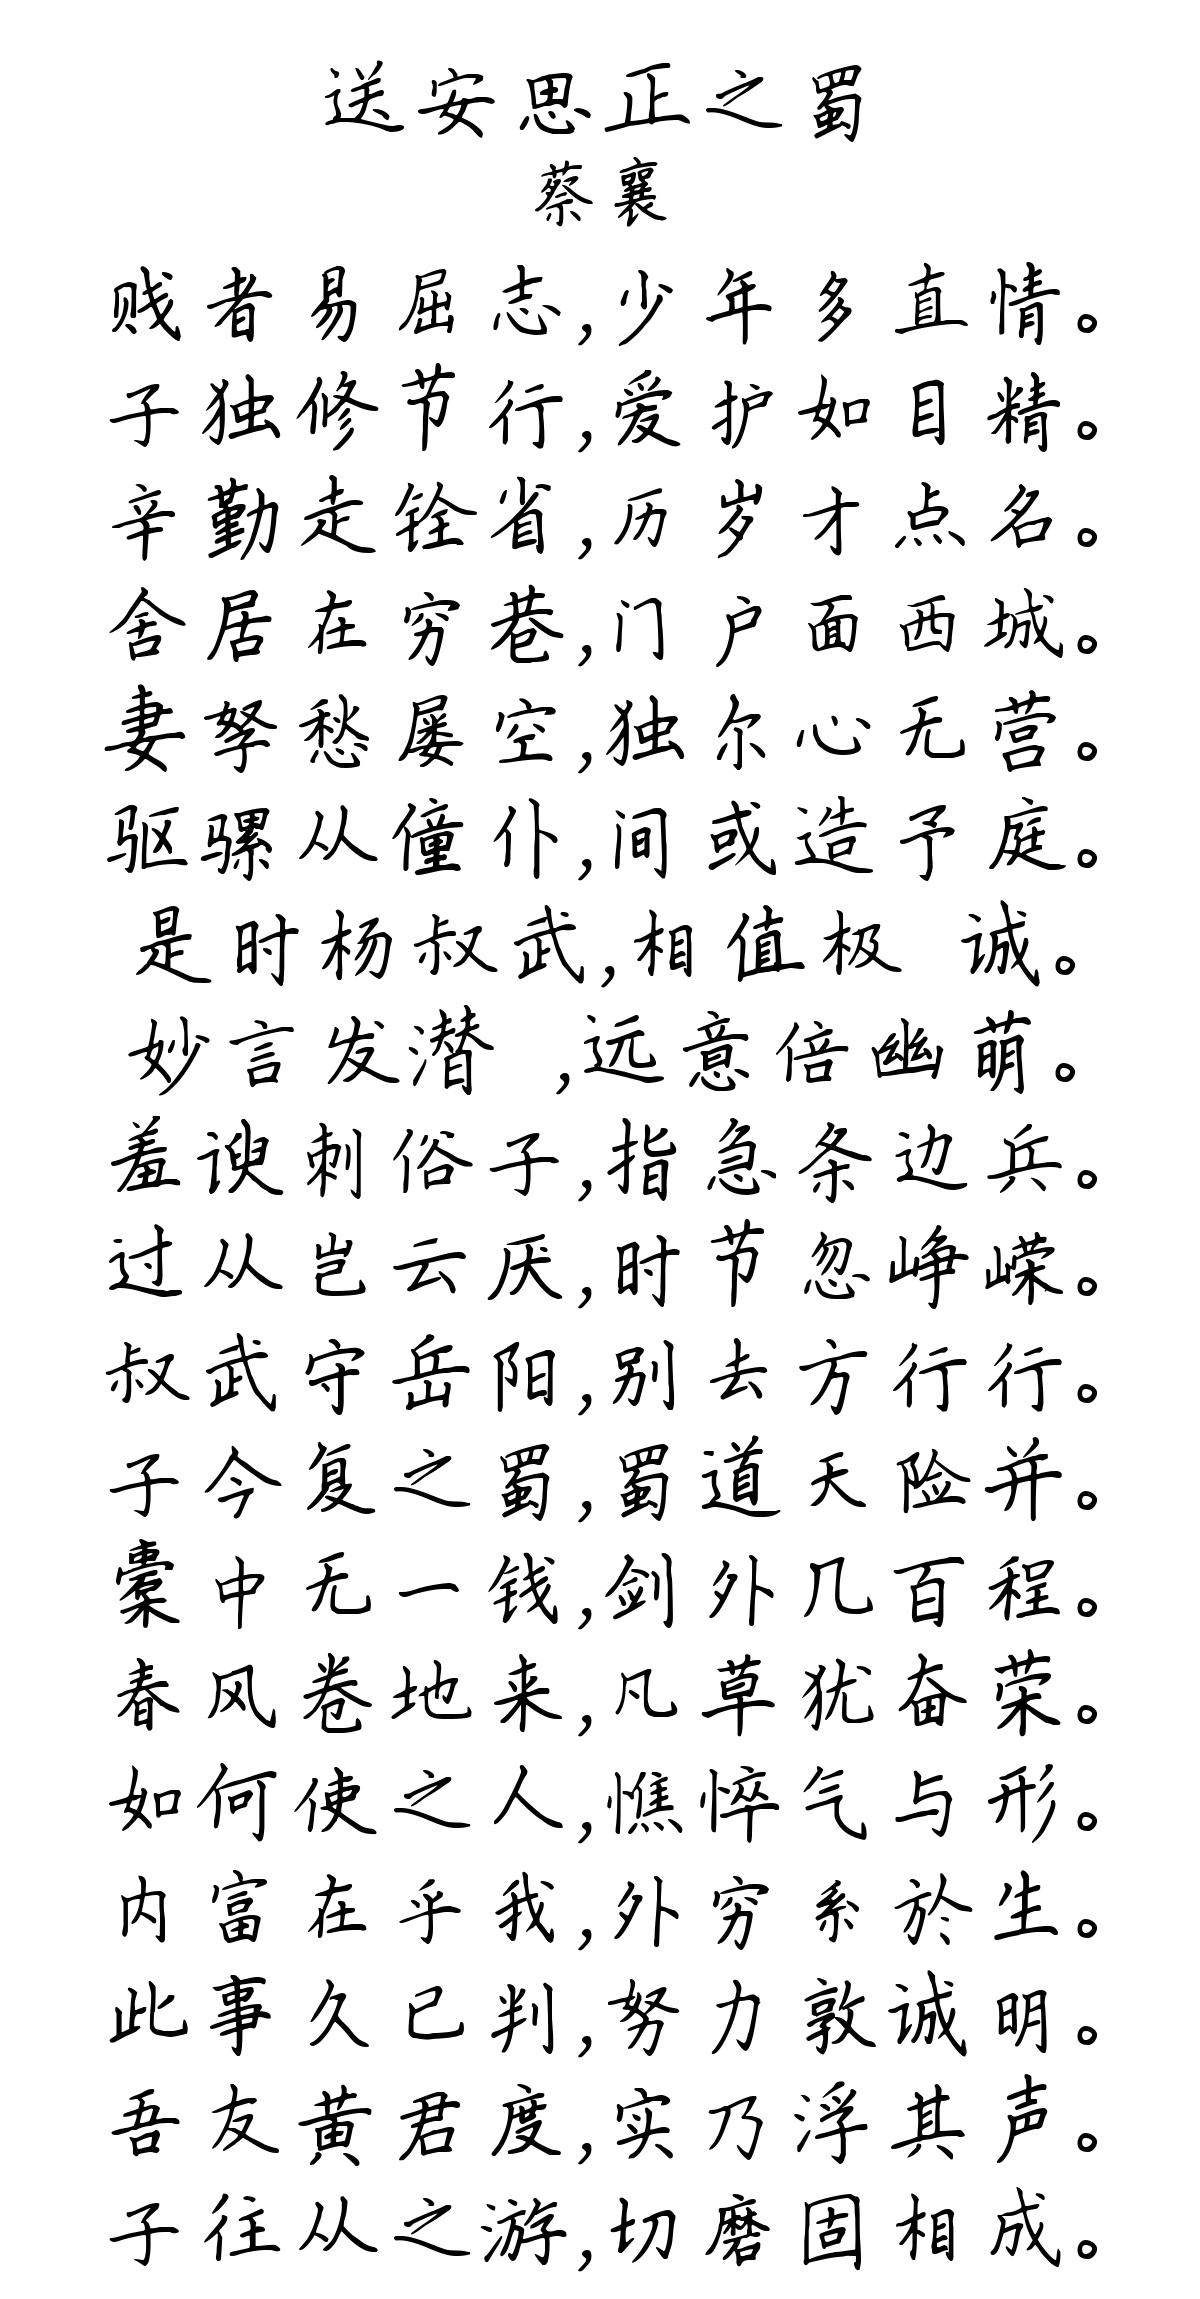 送安思正之蜀
蔡襄
贱者易屈志,少年多直情。
子独修节行,爱护如目精。
辛勤走铨省,历岁才点名。
舍居在穷巷,门户面西城。
妻孥愁屡空,独尔心无营。
驱骡从僮仆,间或造予庭。
是时杨叔武,相值极 诚。
妙言发潜 ,远意倍幽萌。
羞谀刺俗子,指急条边兵。
过从岂云厌,时节忽峥嵘。
叔武守岳阳,别去方行行。
子今复之蜀,蜀道天险并。
橐中无一钱,剑外几百程。
春风卷地来,凡草犹奋荣。
如何使之人,憔悴气与形。
内富在乎我,外穷系於生。
此事久已判,努力敦诚明。
吾友黄君度,实乃浮其声。
子往从之游,切磨固相成。